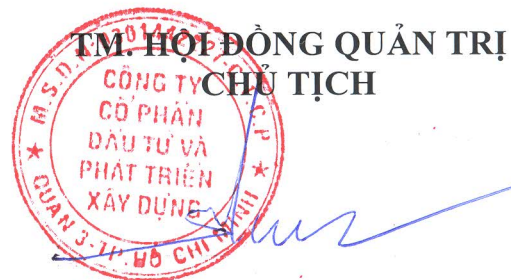 TM. HỘI ĐỒNG QUẢN TRỊ
CHỦ TỊCH
CÔNG TY
CỔ PHẦN
ĐẦU TƯ VÀ
PHÁT TRIỂN
XÂY DỰNG
QUẬN 3 - TP. HỒ CHÍ MINH